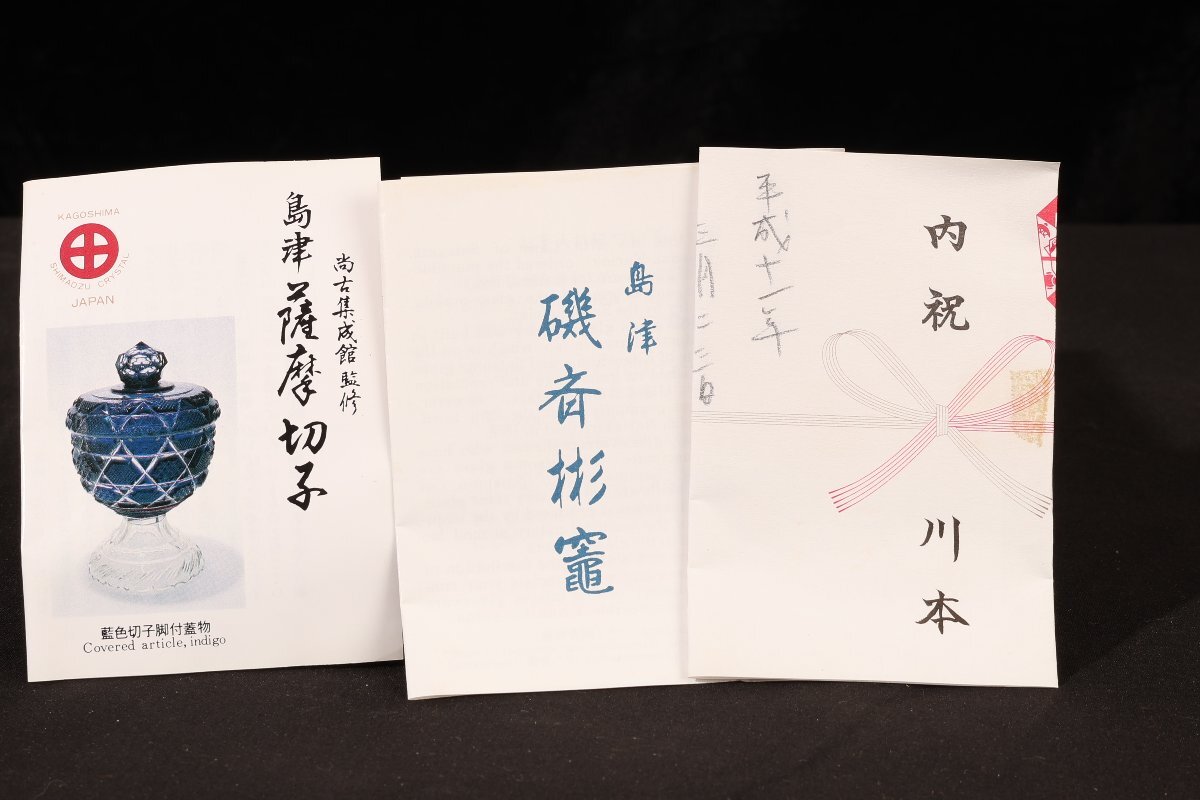 KAGOSHIMA
SHIMADZU CRYSTAL
JAPAN
尚古集成館 監修
島津薩摩切子
藍色切子脚付蓋物
Covered article, indigo
島津
磯斉彬竈
内祝
川本
平成十一年
三月二三日